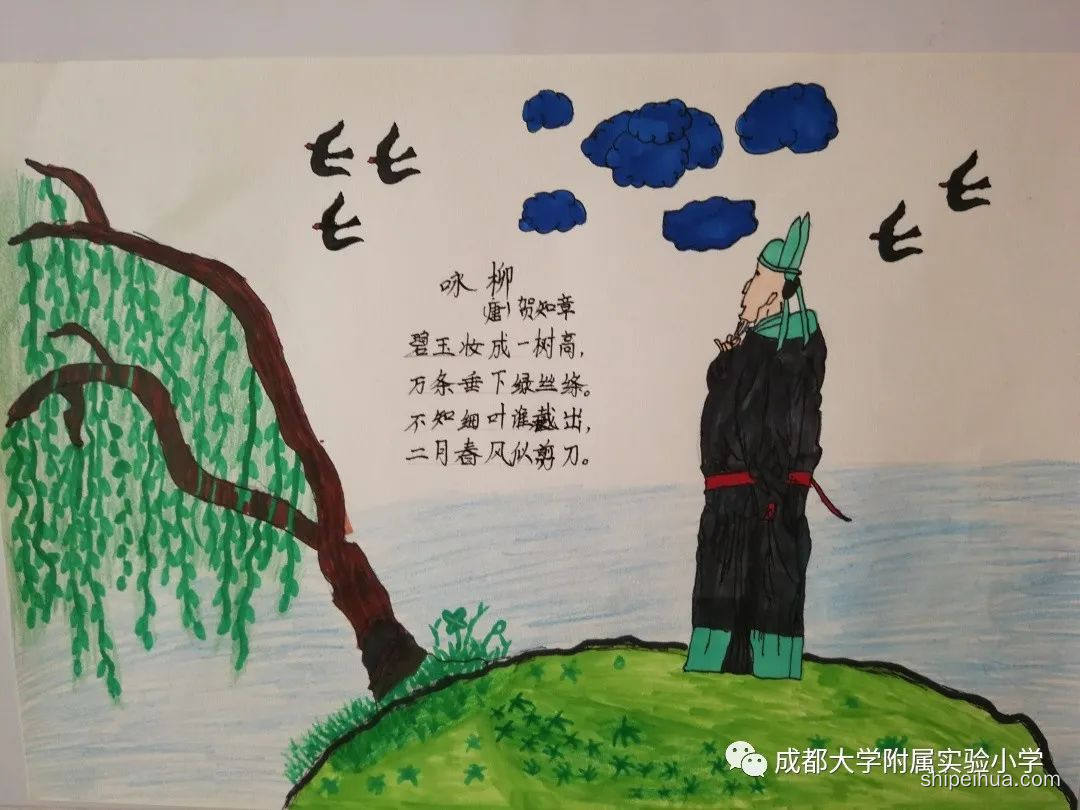 咏柳
(唐)贺知章
碧玉妆成一树高，
万条垂下绿丝绦。
不知细叶谁裁出，
二月春风似剪刀。
成都大学附属实验小学
shipeihua.com